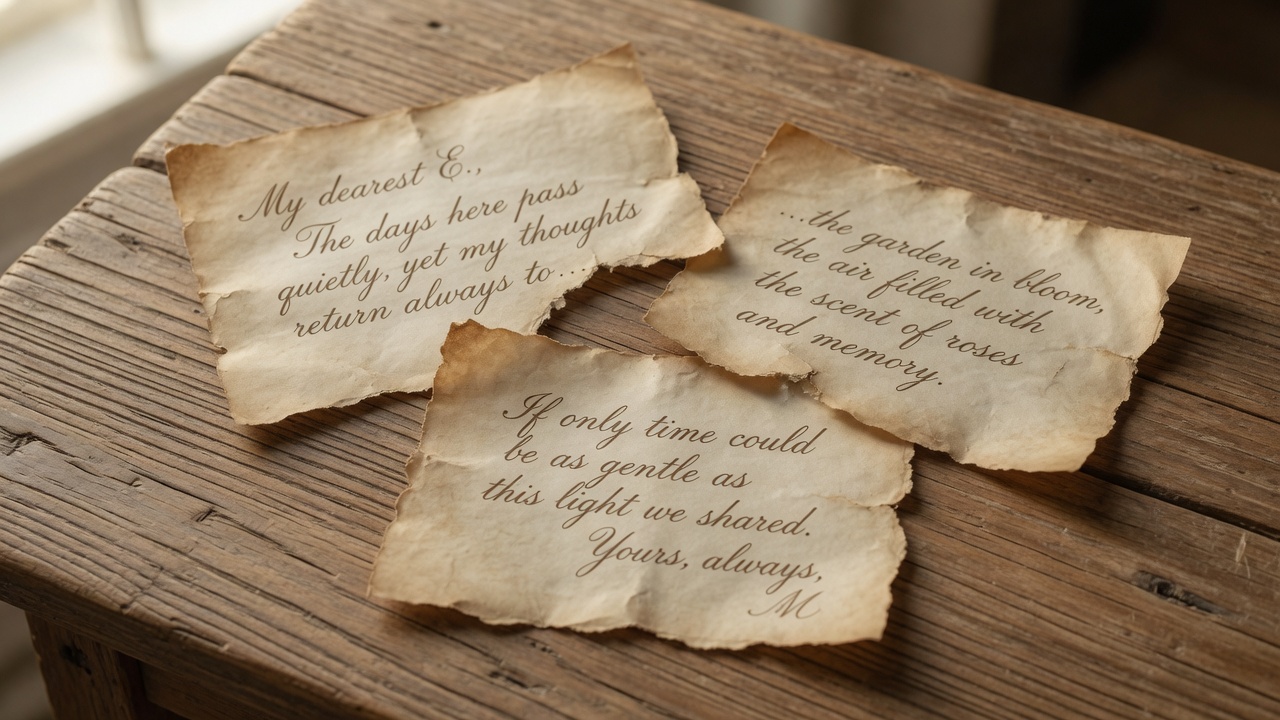 My dearest E.,
The days here pass
quietly, yet my thoughts
return always to...
...the garden in bloom,
the air filled with
the scent of roses
and memory.
If only time could
be as gentle as
this light we shared.
Yours, always,
M